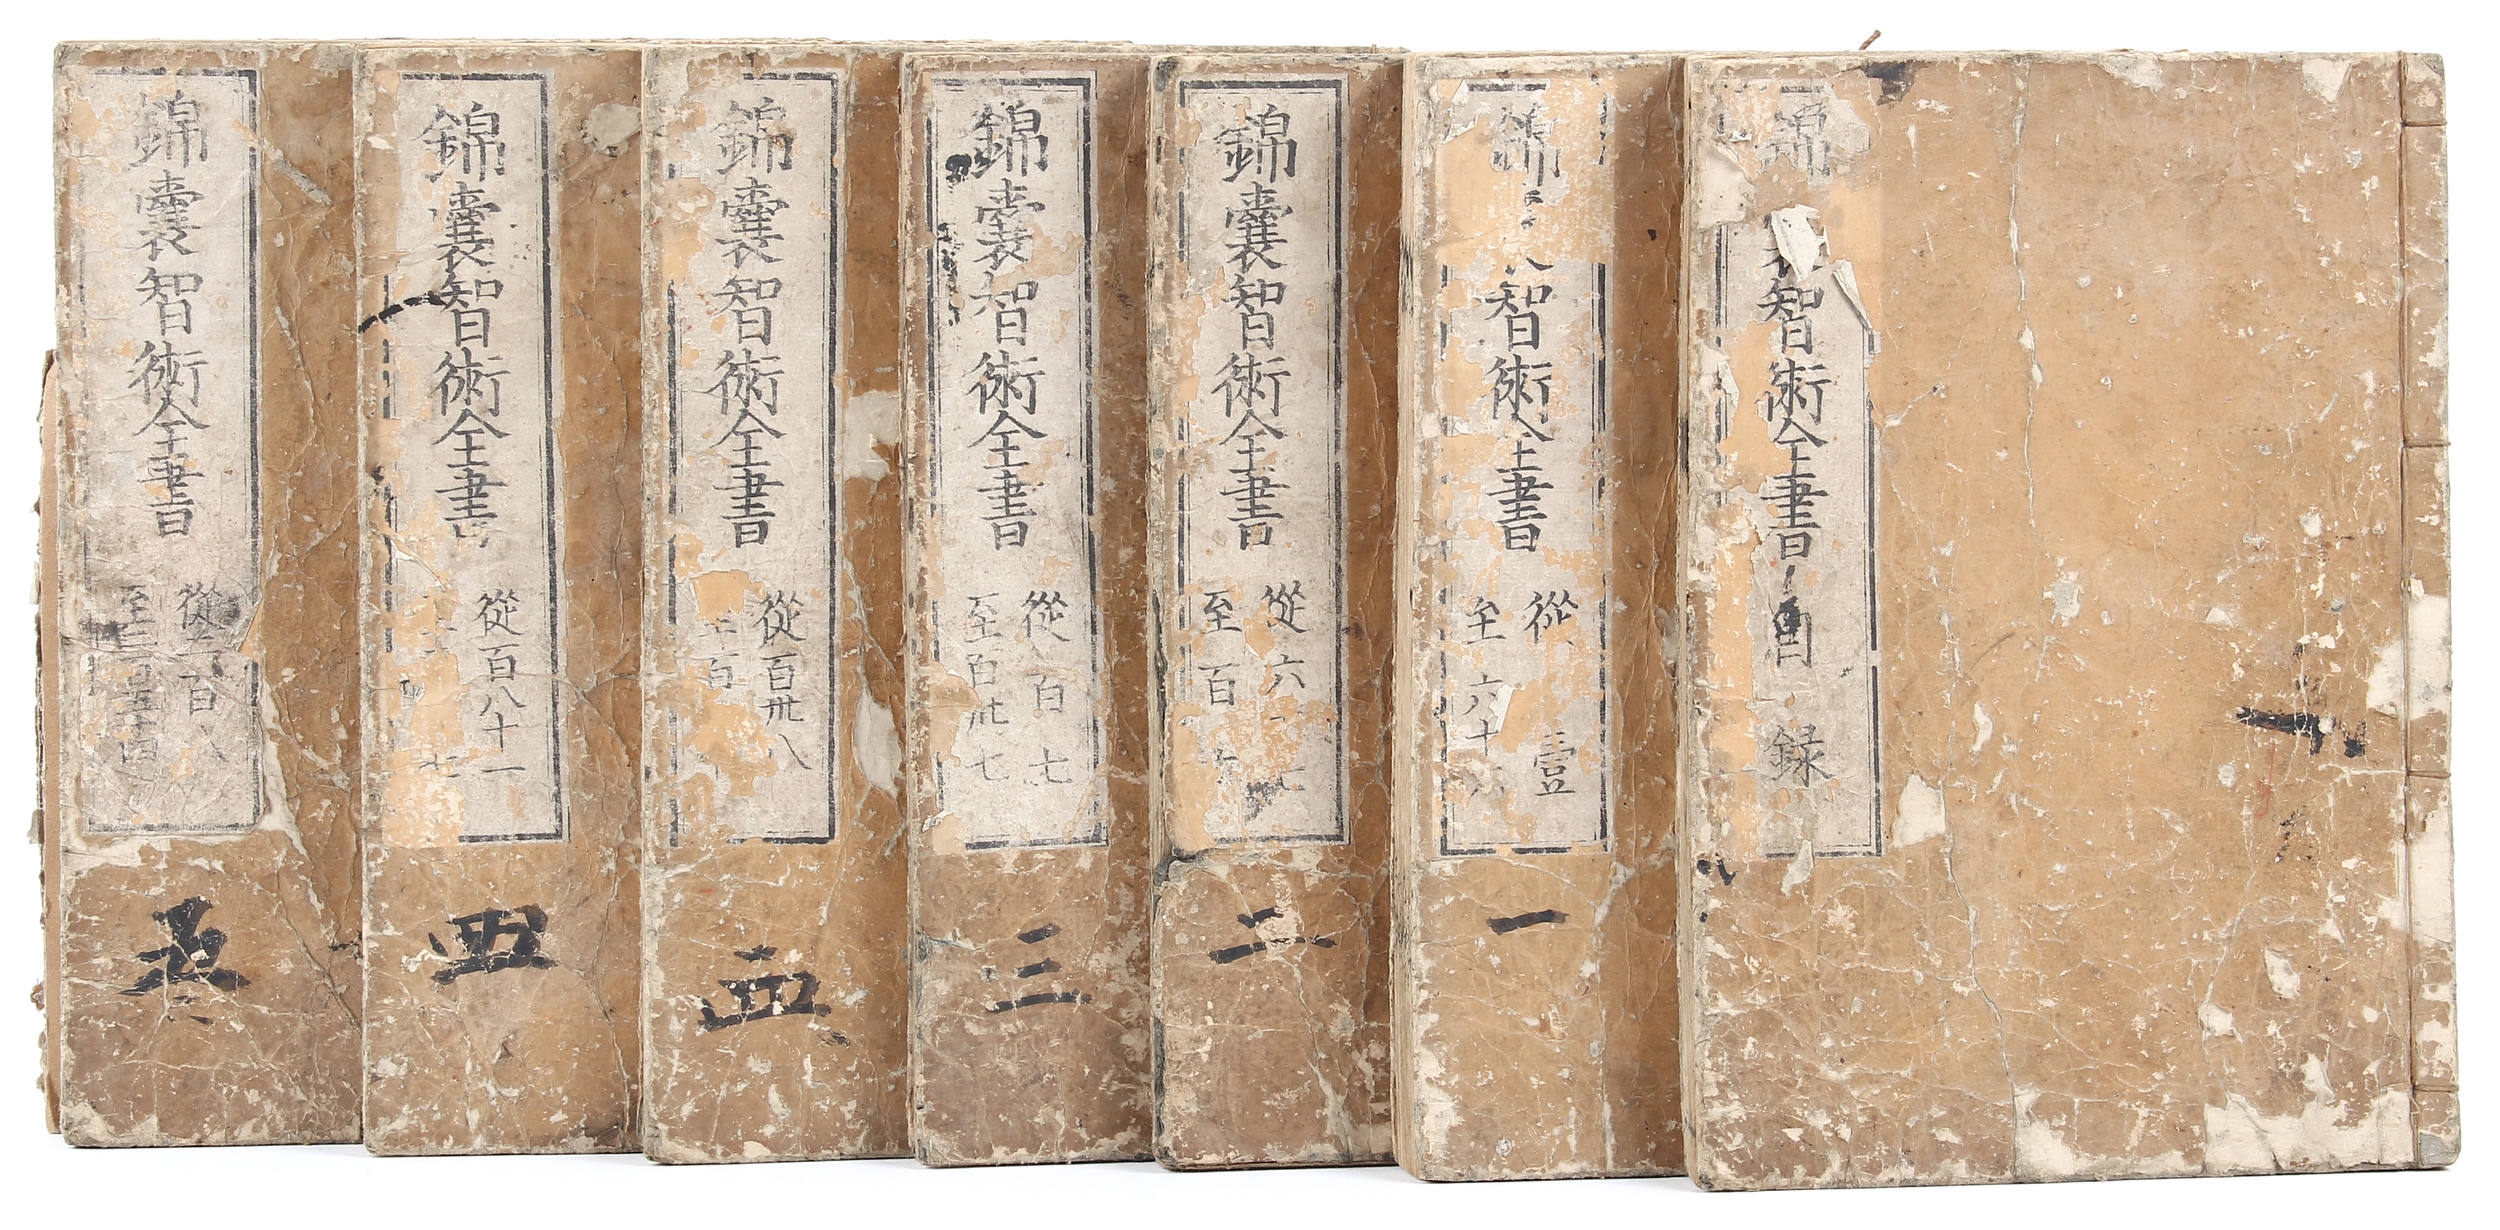 錦 囊智術全書目録
錦 智術全書
從 壹
至六十六
一
錦囊智術全書
從六 七
至百
二
錦囊智術全書
從百七
至百卅七
三
錦囊智術全書
從百卅八
至百
錦囊智術全書
從百八十一
七
四
錦囊智術全書
從 百八
至